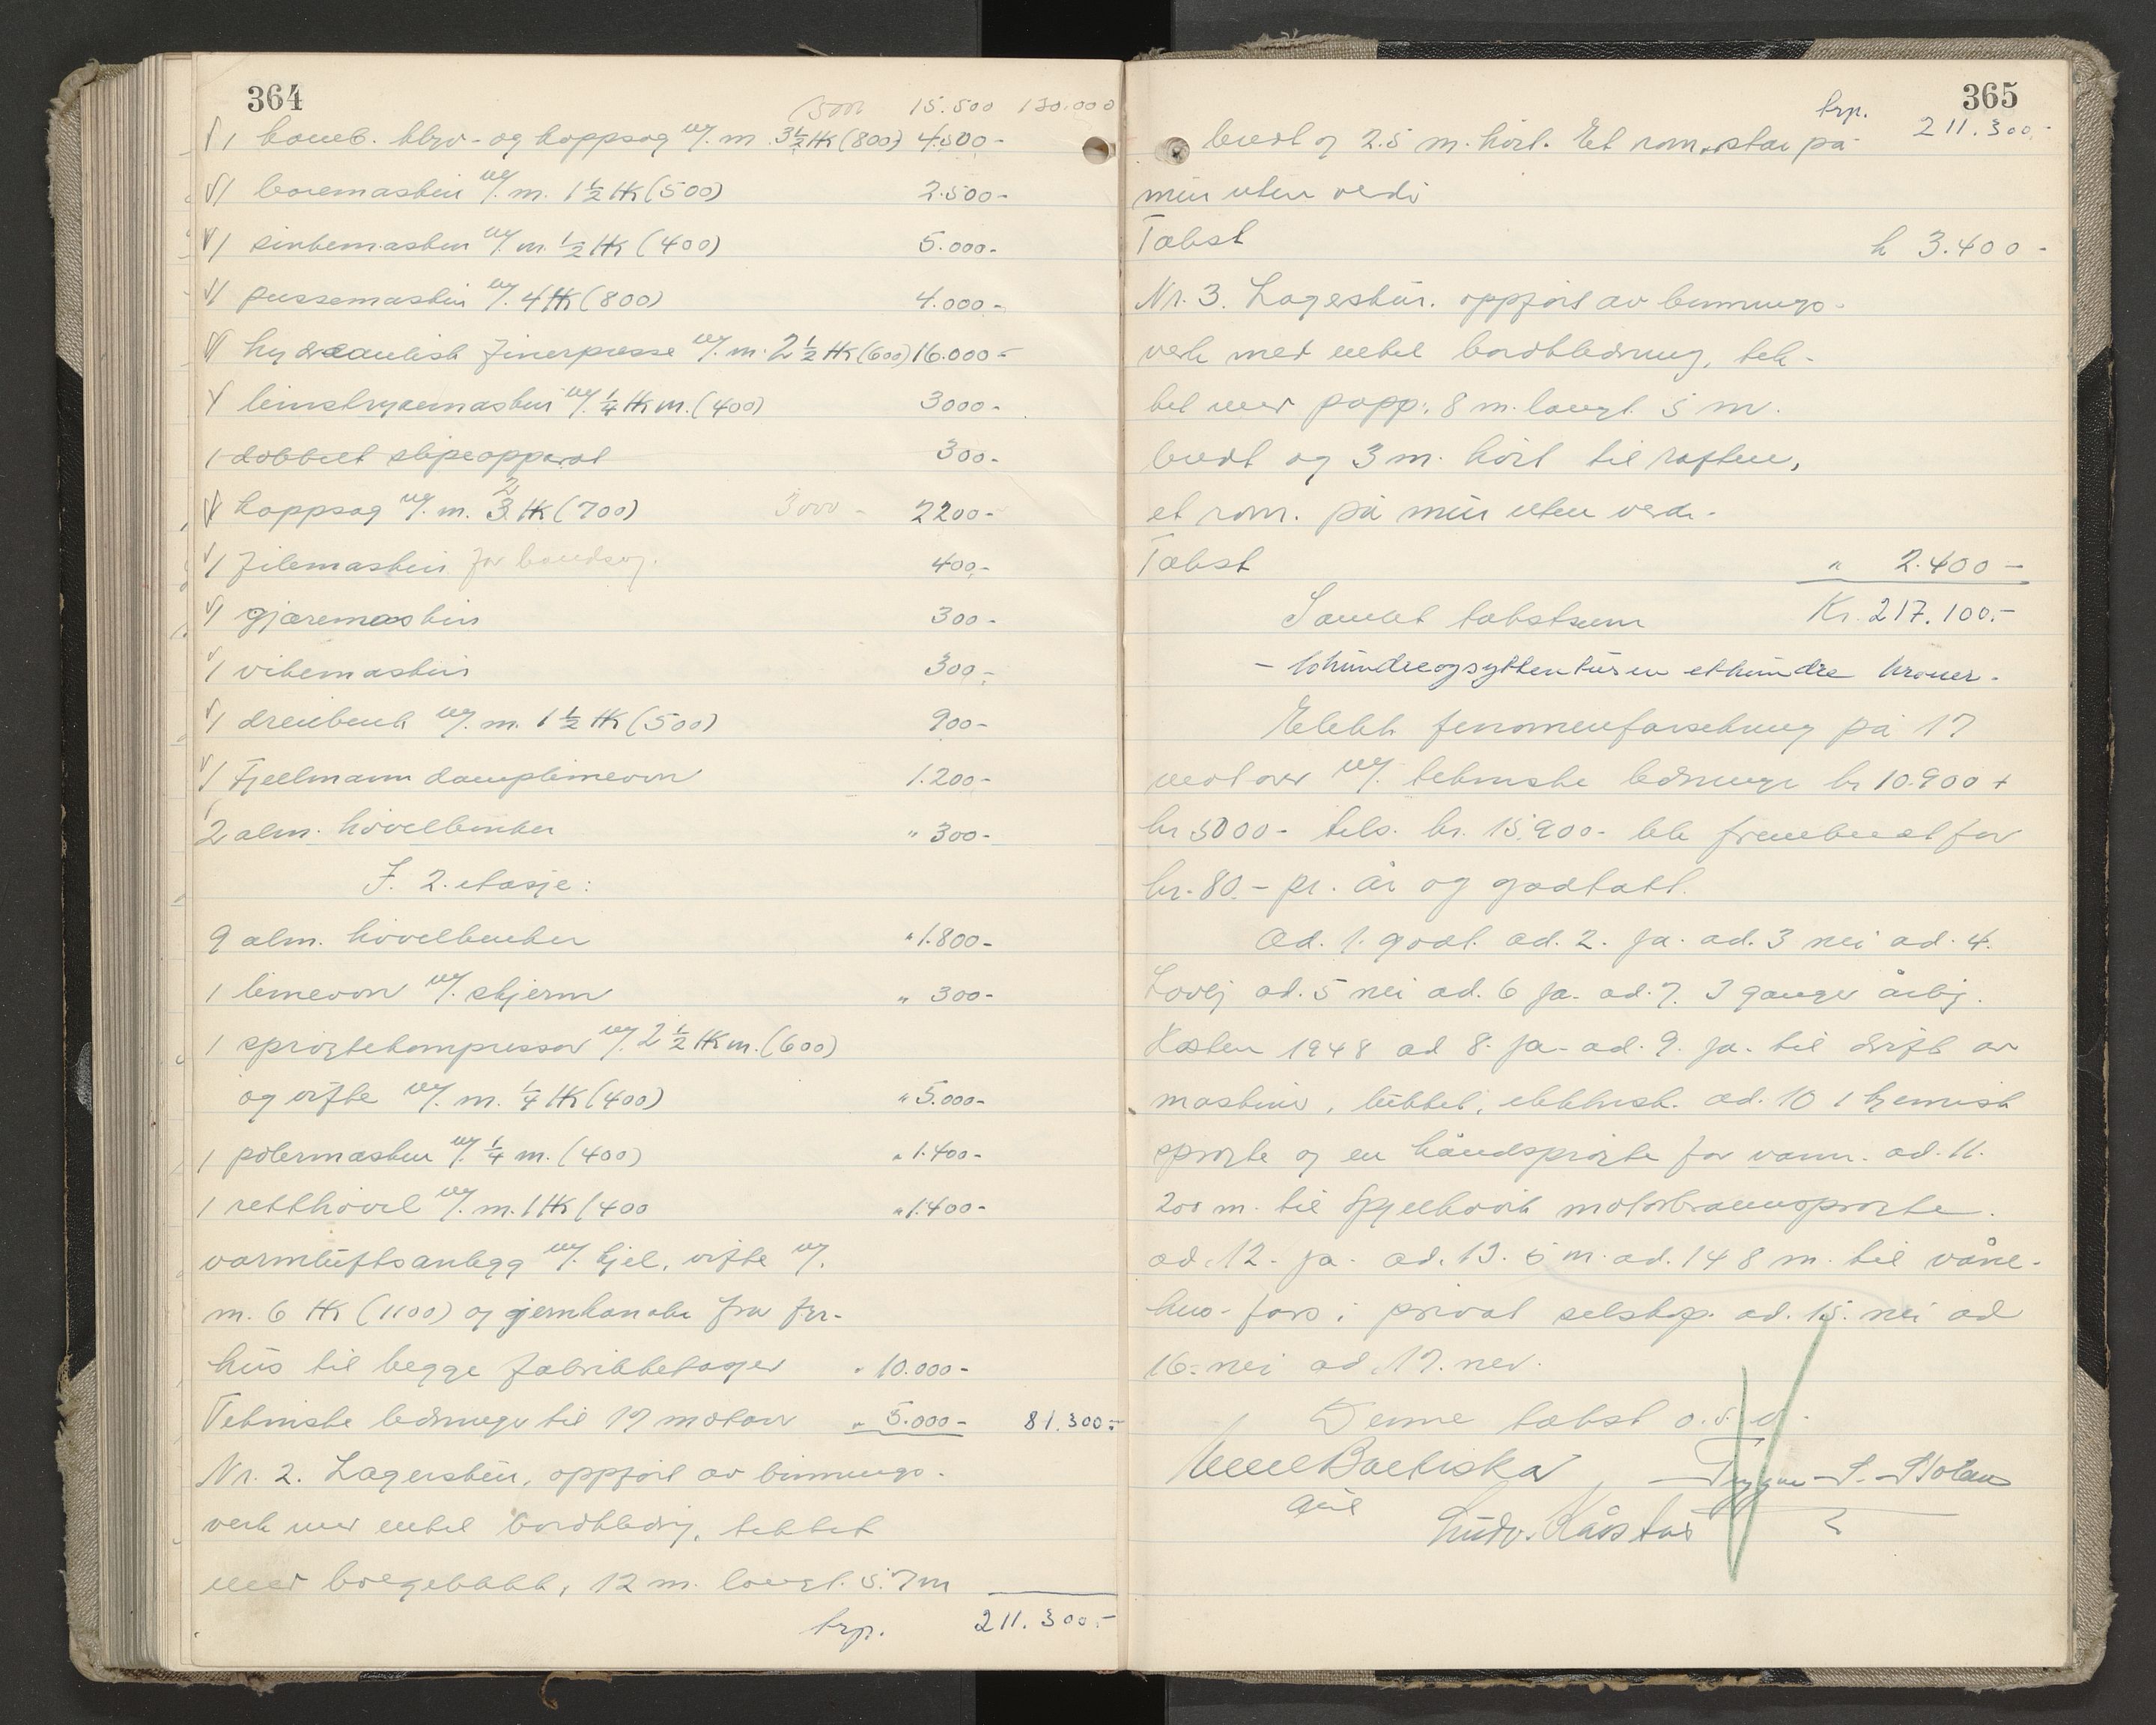 364
15.500 130.000
1 komb. kløv- og kappsag m/. m. 3½ HK (800) 4.500-
1 boremaskin m/. m. 1½ HK (500) 2.500-
1 sinkemaskin m/. m. ½ HK (400) 5.000-
1 pussemaskin m/. 4 HK (800) 4.000-
1 hydraulisk finerpresse m/. m. 2½ HK (600) 16.000-
1 limstrykemaskin m/. ¼ HK m. (400) 3000-
1 dobbelt slipeapparat 300-
1 kappsag m/. m. 3 HK (700) 3000- 2200-
1 filemaskin for bandsag. 400,-
1 gjæremaskin 300-
1 vikemaskin 300-
1 dreiebenk m/. m. 1½ HK (500) 900-
1 Fjellmann damplimovn 1.200-
2 alm. høvelbenker " 300-
I. 2. etasje:
9 alm. høvelbenker " 1.800-
1 limovn m/. skjerm " 300-
1 sprøytekompressor m/. 2½ HK m. (600)
og vifte m/. m. ¼ HK (400) " 5.000-
1 polermaskin m/. ¼ m. (400) " 1.400-
1 retthøvel m/. m. 1 HK (400 " 1.400-
varmluftsanlegg m/. kjel, vifte m/.
m. 6 HK (1100) og jernkanaler fra fyr-
hus til begge fabrikketasjer " 10.000-
Tekniske ledninger til 17 motorer " 5.000- 81.300:-
Nr. 2. Lagerskur, oppført av binnings-
verk med enkel bordkledn, tekket
med bølgeblikk, 12 m. langt. 5.7 m
trp. 211.300.-
365
trp. 211.300.-
bredt og 2.5 m. høit. Et rom, står på
mur uten verdi
Takst k 3.400-
Nr. 3. Lagerskur. oppført av binnings-
verk med enkel bordkledning, tek-
ket med papp, 8 m. langt. 5 m.
bredt og 3 m. høit til raften,
et rom. på mur uten verdi-
Takst " 2.400-
Samlet takstsum Kr. 217.100.-
- tohundreogsyttentusen etthundre kroner-
Elekt. fenomenforsikring på 17
motorer m/. tekniske ledninger kr 10.900 +
kr 5000- tils. kr. 15.900- ble frembudt for
kr. 80.- pr. år og godtatt.
Ad. 1. godt. ad. 2. ja. ad. 3 nei ad. 4.
ad. 5 nei ad. 6 ja. ad. 7. 3 ganger årlig.
Høsten 1948 ad 8. ja- ad. 9. ja. til drift av
maskiner, lukket, elektrisk. ad. 10 1 kjemisk
sprøyte og en håndsprøyte for vann. ad. 11.
200 m. til Spjelkavik motorbrannsprøyte.
ad. 12- ja- ad. 13. 5 m. ad. 14 8 m. til våne-
hus- fors i privat selskap. ad. 15. nei ad
16- nei ad 17. nei.
Denne takst o.s.v.
Ludv. Kårstad